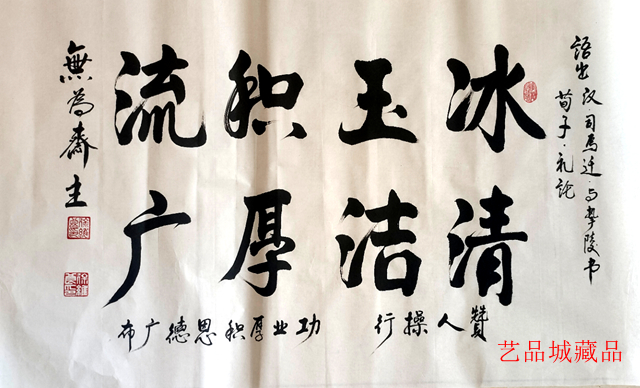 語出汉·司马迁·与挚陵书
荀子·礼论
冰清
玉洁
积厚
流广
贊人操行 功业厚积恩德广布
無為齋主
艺品城藏品